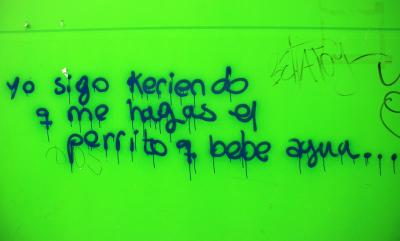 yo sigo Keriendo
q me hagas el
perrito q bebe agua...